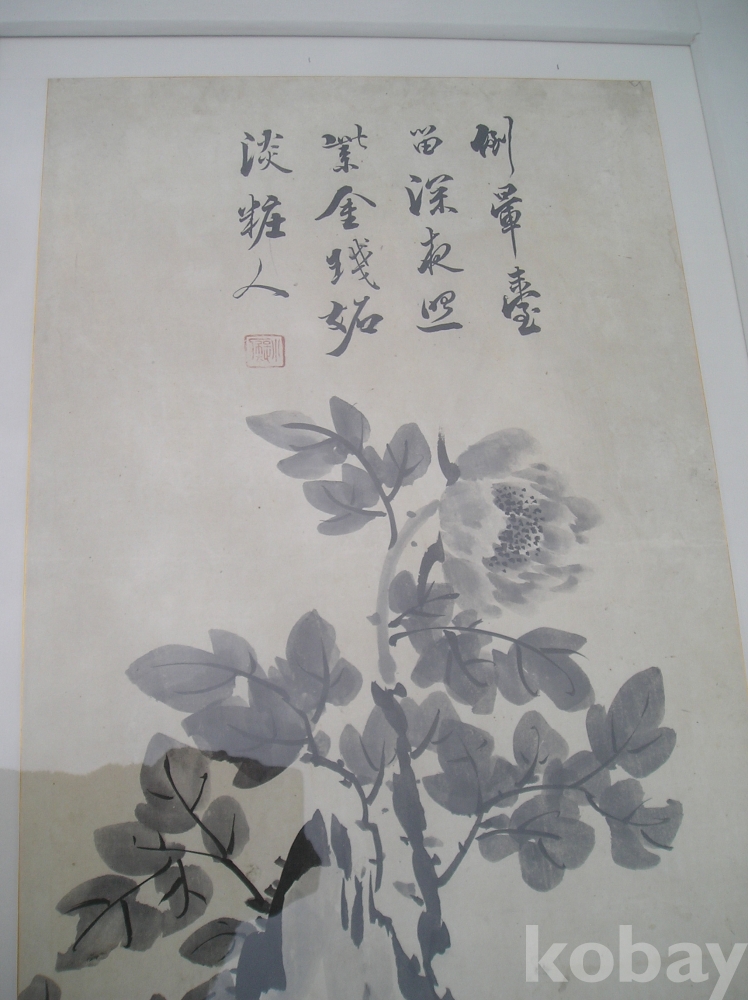 倒暈臺
留深夜照
紫金琖妬
淡粧人
kobay